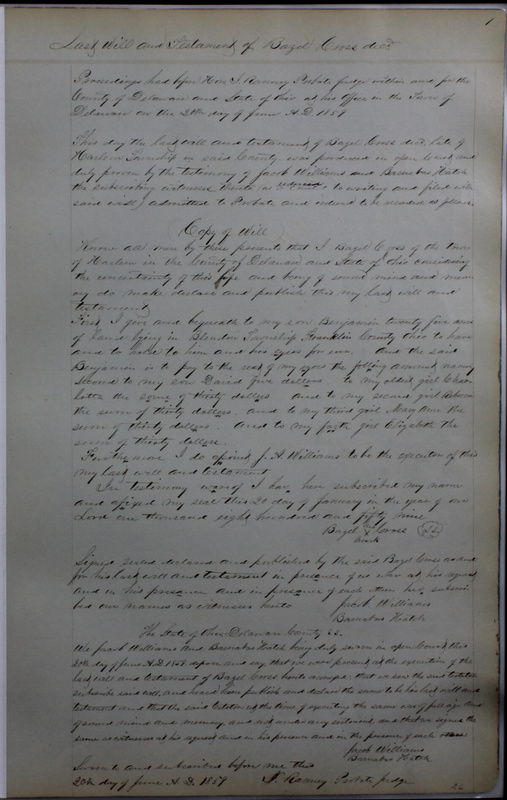 1
Last Will and Testament of Bazel Cross decd
Proceedings had before Hon. T. Ranney Probate judge within and for the
County of Delaware and State of Ohio at his office in the Town of
Delaware on the 20th day of June A.D. 1859
This day the last will and testament of Bazel Cross decd late of
Harlem Township in said County was produced in open Court and
duly proven by the testimony of Jacob Williams and Barnabus Hatch
the subscribing witnesses thereto (as reduced to writing and filed with
said will) admitted to Probate and ordered to be recorded as follows
Copy of Will
Know all men by these presents that I Bazel Cross of the town
of Harlem in the County of Delaware and State of Ohio considering
the uncertainty of this life and being of sound mind and mem
ory do make declare and publish this my last will and
testament
First I give and bequeath to my son Benjamin twenty five acres
of land lying in Blendon Township Franklin County Ohio to have
and to hold to him and his ares for ever. and the said
Benjamin is to pay to the rest of my ares the following amount namly
Second to my son David five dollars to my oldest girl Char
lotta the some of thirty dollars and to my second girl Rebecca
the sum of thirty dollars. and to my third girl Mary Ann the
sum of thirty dollars. and to my forth girl Elizabeth the
sum of thirty dollars.
Further more I do apoint J. A. Williams to be the executor of this
my last will and testament
In testimony wareof I have here subscribed my name
and afixed my seal this 20 day of January in the year of our
Lord one thousand eight hundred and fifty nine
Bazel his X Cross
mark
Signed sealed declared and published by the said Bazel Cross as and
for his last will and testament in presence of us who at his request
and in his presence and in presence of each other have subscri
bed our names as witnesses hereto Jacob Williams
Barnabus Hatch
The State of Ohio Delaware County SS.
We Jacob Williams and Barnabus Hatch being duly sworn in open Court this
20th day of June A.D. 1859 depose and say that we were present at the execution of the
last will and testament of Bazel Cross hereto annexed: that we saw the said testator
subscribe said will, and heard him publish and declare the same to be his last will and
testament and that the said testator at the time of executing the same was of full age and
of sound mind and memory and not under any restraint and that we signed the
same as witnesses at his request and in his presence and in the presence of each other
Jacob Williams
Barnabus Hatch
Sworn to and subscribed before me this
20th day of June A.D. 1859 T. Ranney Probate judge